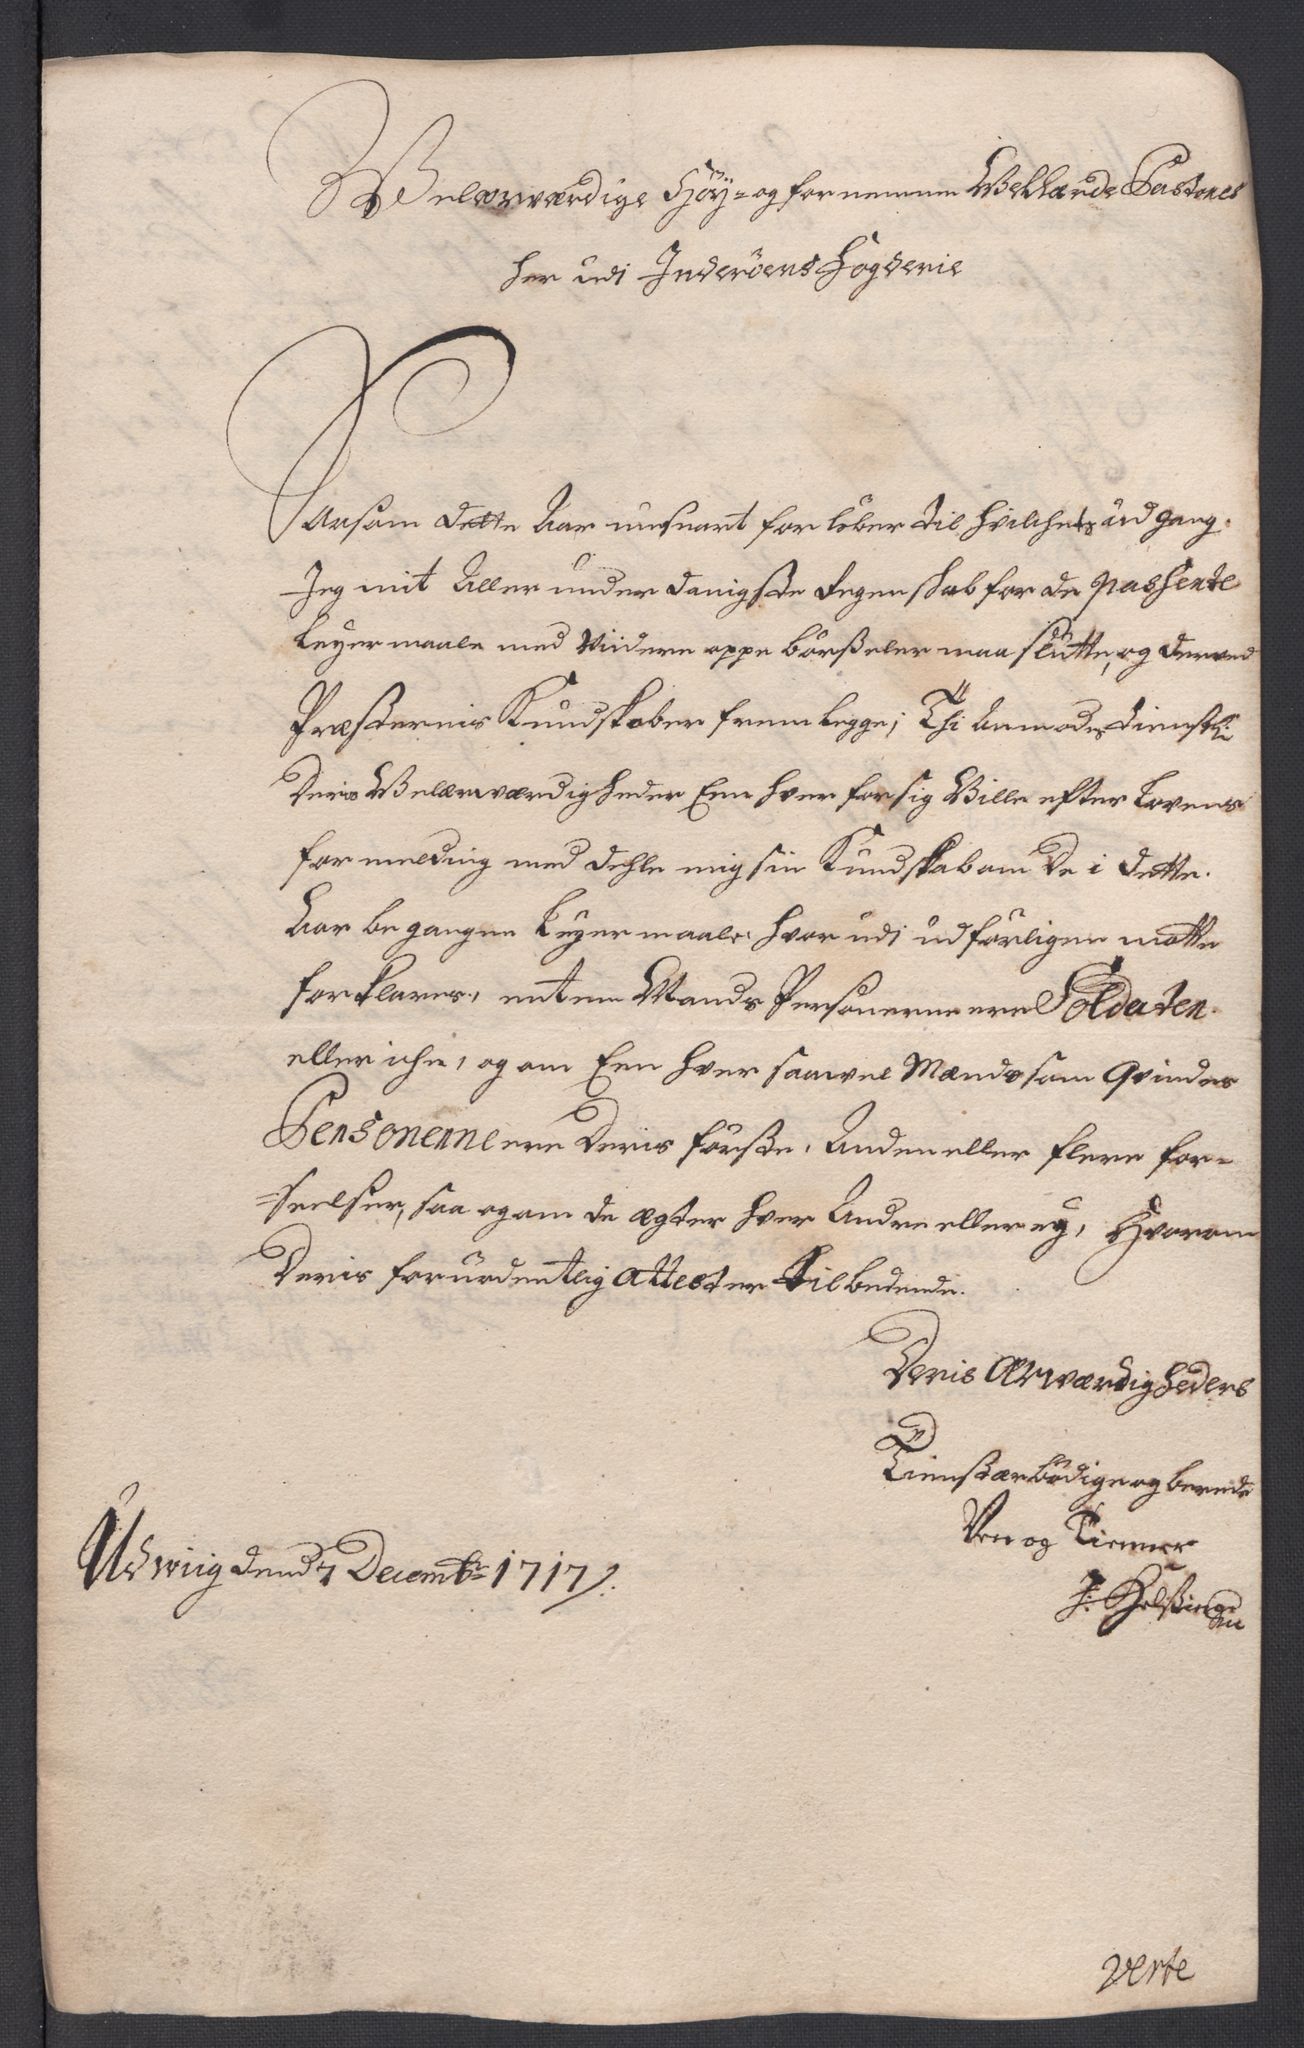 Welærværdige Höy- og fornemme Wellærde Pastores
her udj Inderöens Fogderie
Saasom dette Aar nu snart forlöber til hvilchets udgang
Jeg mit Aller underdanigste Regenskab for de passerte
Leyermaale med Viidere oppebörßeler maa slutte, og derved
Præsternis Kundskaber fremlegge; Thi Anmodes tienstl:
Deris Welærværdigheder Een hver for sig Wille efter Lovens
formelding meddehle mig sin Kundskab om De i dette
Aar begangne Leyermaale, hvor udj udförligen motte
forklares, enten Mands Personerne ere Soldater
eller iche, og om Een hver saavel Mands som Qvindes
Personerne ere Deris förste, Anden eller flere for-
=seelser, saa og om de ægter hver Andre eller ey, Hvorom
Deris foruordentlig Attester tilbedende.
Deris Ærværdigheders
Tienstærbödige og berede
Ven og Tienner
J: Helßing
Udwiig dend 7 Decembr 1717/.
verte